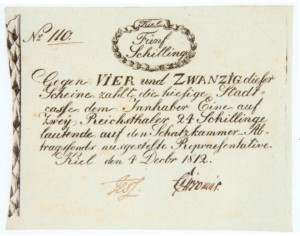 No 110.
Kiel
Fünf
Schilling
Gegen VIER und ZWANZIG dieser
Scheine zahlt die hiesige Stadt-
casse dem Innhaber Eine auf
Zwey Reichsthaler 24 Schillinge
lautende auf den Schatzkammer-Ab-
tragsfonds ausgestellte Repraesentative.
Kiel den 4 Decbr 1812.